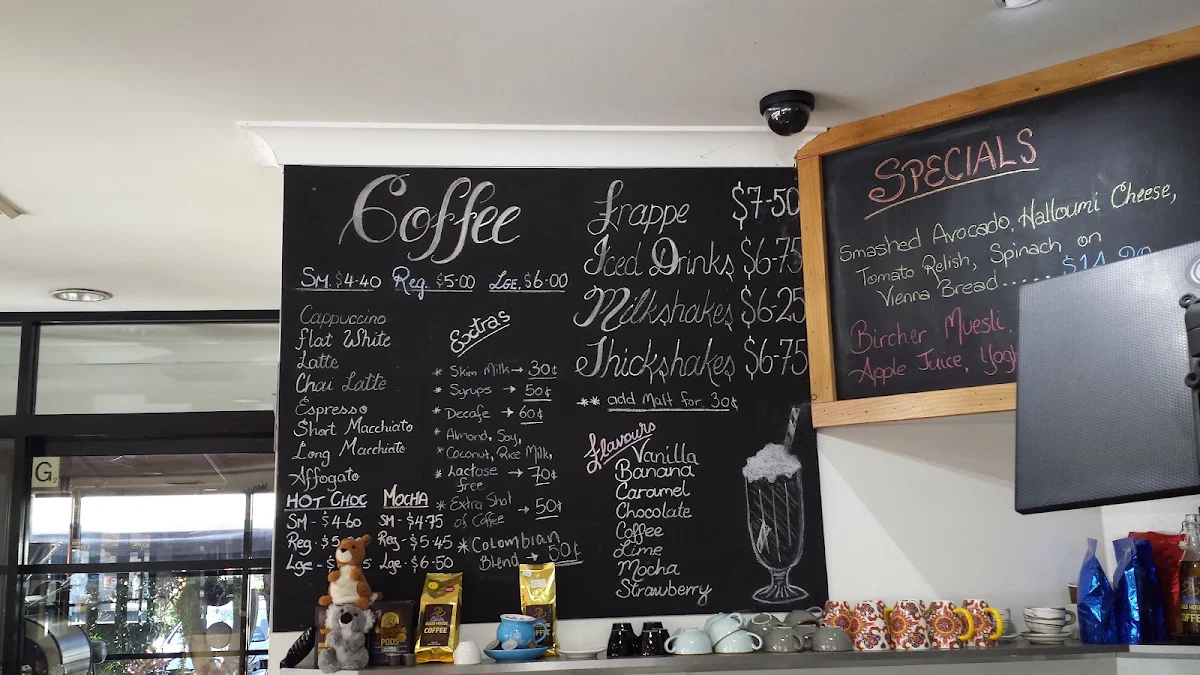 Coffee
SM. $4-40 Reg. $5-00 LGE. $6-00
Cappuccino
flat White
Latte
Chai Latte
Espresso
Short Macchiato
Long Macchiato
Affogato
HOT CHOC
SM - $4-60
Reg - $5
Lge - $
MOCHA
SM - $4-75
Reg - $5-45
Lge - $6-50
Extras
* Skim Milk → 30¢
* Syrups → 50¢
* Decafe → 60¢
* Almond, Soy,
* Coconut, Rice Milk,
* Lactose free → 70¢
* Extra Shot of Coffee → 50¢
* Colombian Blend → 50¢
Frappe $7-50
Iced Drinks $6-75
Milkshakes $6-25
Thickshakes $6-75
** add Malt for 30¢
Flavours
Vanilla
Banana
Caramel
Chocolate
Coffee
Lime
Mocha
Strawberry
SPECIALS
Smashed Avocado, Halloumi Cheese,
Tomato Relish, Spinach on
Vienna Bread..... $14.90
Bircher Muesli,
Apple Juice, Yogh
G
GLASS HOUSE
COFFEE
PODS